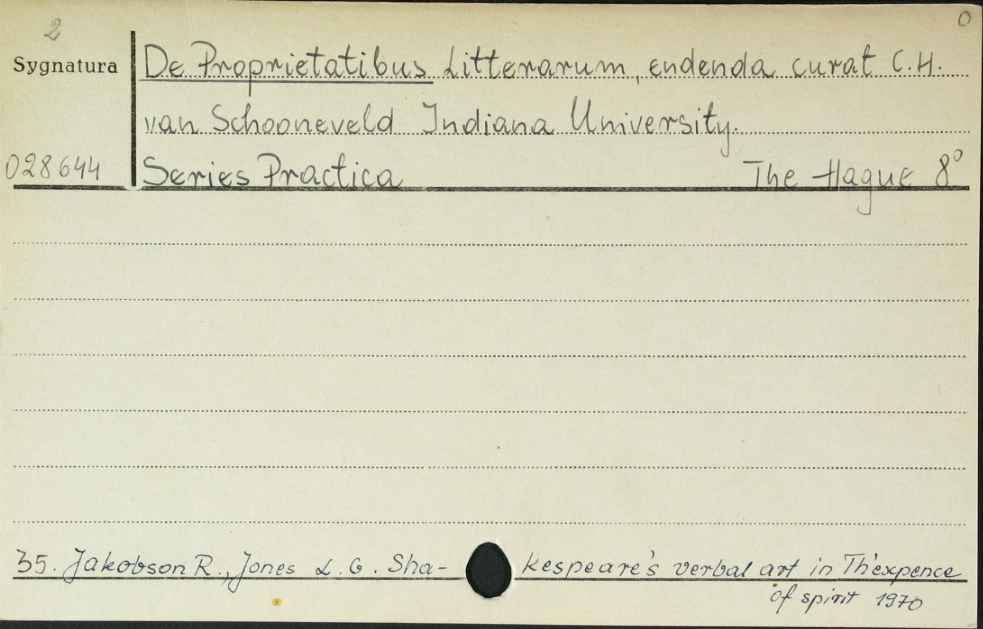 2
0
Sygnatura
De Proprietatibus Litterarum, endenda curat C.H.
van Schooneveld Indiana University.
028644
Series Practica The Hague 8°
35. Jakobson R., Jones L. G. Sha-kespeare's verbal art in Th'expence
of spirit 1970